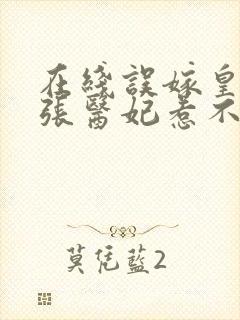 在綫誤嫁皇
張醫妃惹不
莫凭藍2